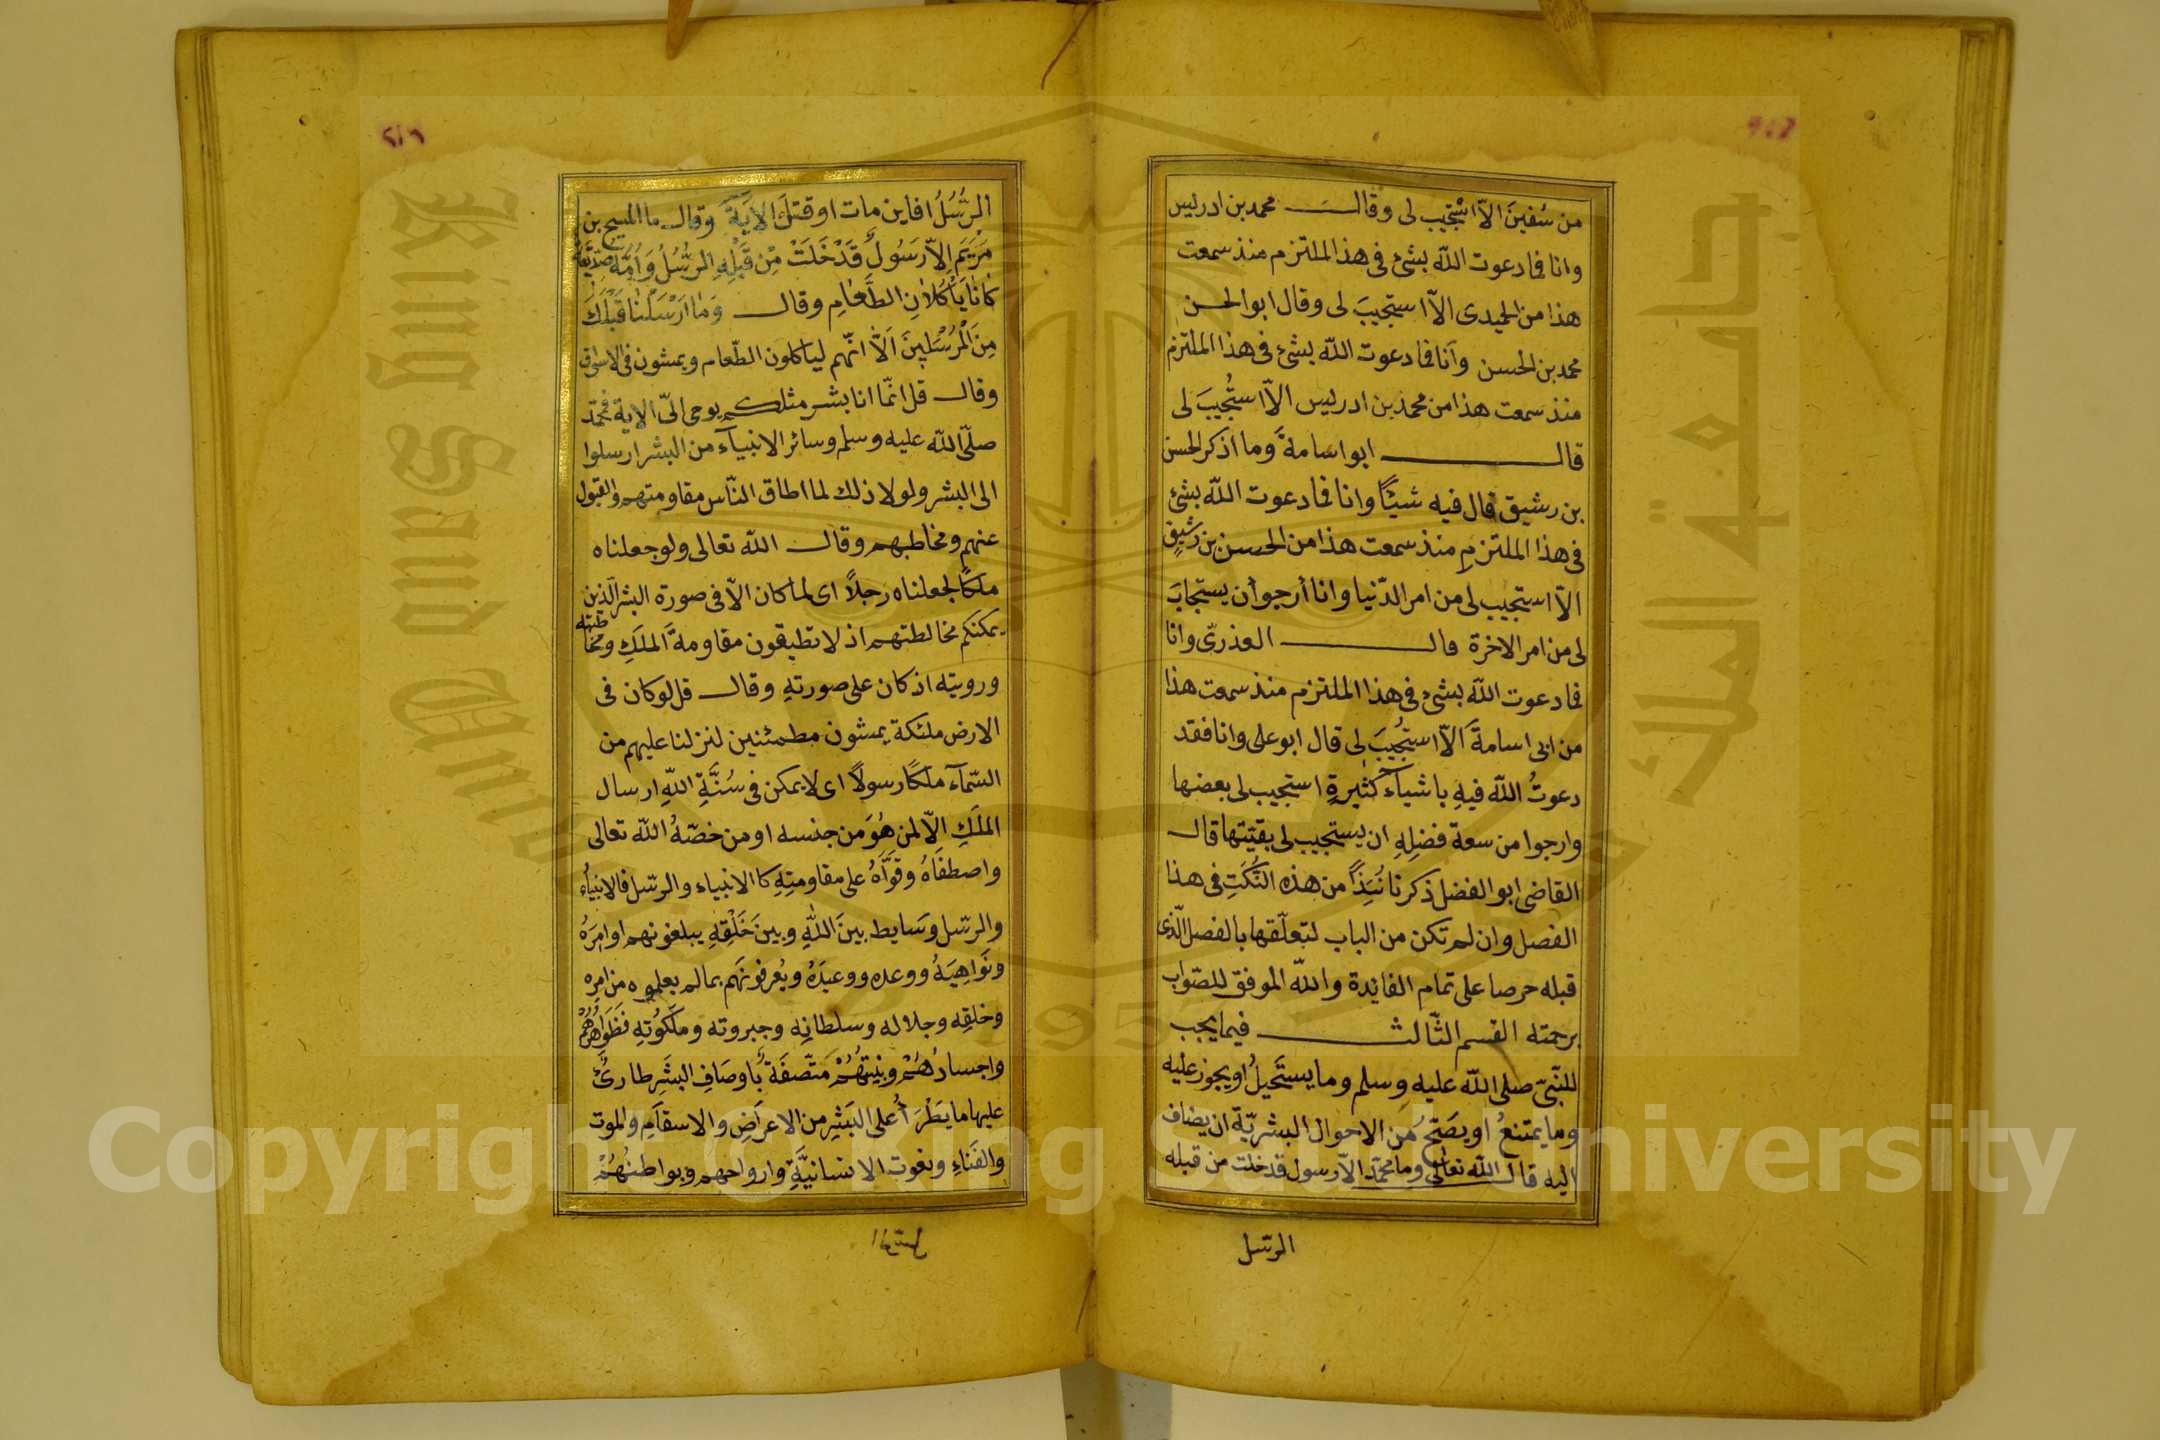 من سُفينَ الاّ اسْتُجِيب لى وقال محمد بن ادريس
وانا فما دعوت اللّه بشئ فى هذا الملتزم منذ سمعت
هذا من الحميدى الاّ استجيبَ لى وقال ابو الحسن
محمد بن الحسن وأنا فما دعوت اللّه بشئ فى هذا الملتزم
منذ سمعت هذا من محمد بن ادريس الاّ استُجيبَ لى
قال ابو اسامةَ وما اذكر الحسن
بن رشيق قال فيه شيئًا وانا فما دعوت اللّه بشئ
فى هذا الملتزمِ منذ سمعت هذا من الحسن بن رشيقٍ
الاّ استجيب لى من امر الدّنيا وانا أرجو أن يستجابَ
لى من امر الاخرة قال العذرىّ وانا
فما دعوت اللّه بشئ فى هذا الملتزم منذ سمعت هذا
من ابى اسامةَ الاّ استُجِيبَ لى قال ابو على وانا فقد
دعوتُ اللّه فيهِ باشياء كثيرةٍ استجيب لى بعضها
وارجوا من سعة فضلِهِ ان يستجيب لى بقيّتها قال
القاضى ابو الفضل ذكرنا نُبَذًا من هذه النُّكَتِ فى هذا
الفصل وان لم تكن من الباب لتعلّقها بالفصل الّذى
قبله حرصا على تمام الفائدة واللّه الموفق للصّواب
برحمته القسم الثّالث فيما يجب
للنّبىّ صلى اللّه عليه وسلم وما يستَحيلُ او يجوز عليه
وما يمتنعُ او يصَحّ من الاحوال البشريّة ان يضاف
اليه قال اللّه تعالى وما محمّد الاّ رسول قد خلت من قبله
الرسل
الرُّسُلُ افاين مات او قتلَ الايَةَ وقال ما المسيح بن
مَرْيَمَ اِلاّ رَسُولٌ قَدْ خَلَتْ مِنْ قَبْلِهِ الرُّسُلُ وَاُمُّهُ صِدّيقَةٌ
كَانَا يَأْكُلاَنِ الطَّعَامِ وقال وَمَا اَرْسَلْنَا قَبْلَكَ
مِنَ الْمُرْسَلِينَ اَلاَّ انّهم ليأكلون الطّعام ويمشون فى الاسواق
وقال قل انمّا انا بشر مثلكم يوحى الىّ الاية فمحمّد
صلّى اللّه عليه وسلم وسائر الانبيآء من البشر ارسلوا
الى البشر ولولا ذلك لما اطاق النّاس مقاومتهم والقبول
عنهم ومخاطبهم وقال اللّه تعالى ولو جعلناه
ملكًا لجعلناه رجلاً اى لما كان الاّ فى صورة البشر الّذين
يمكنكم مخالطتهم اذ لا تطيقون مقاومةَ الملَكِ ومخاطبته
ورويته اذ كان على صورتهِ وقال قل لو كان فى
الارض ملئكة يمشون مطمئنين لنزلنا عليهم من
السّمآء ملَكًا رسولاً اى لا يمكن فى سُنَّةِ اللّهِ ارسال
الملَكِ الاّ لمن هُوَ من جنسه او من خصّهُ اللّه تعالى
واصطفَاهُ وقَوَّاهُ على مقاومتِهِ كالانبياء والرّسل فالانبيآء
والرّسل وسَايط بينَ اللّهِ وبين خَلْقِهِ يبلغونهم اوامِرَهُ
ونَوَاهِيَهُ ووعده ووعيدَهُ ويُعرفونَهَم بمالم يعلموه من امرِه
وخلقِه وجلاله وسلطانِه وجبروته وملَكُوتِهِ فظَوَاهِرُهُمْ
واجسادُهُمْ وبِنْيَتُهُمْ مَتّصفَةٌ بأوصَافِ البشَرِ طارئٌ
عليها ما يَطْرَأُ على البَشَرِ من الاعرَاضِ والاسقَامِ والموت
والفَنَاءِ ونعوت الانسانيَّةِ وارواحهم وبواطنُهُمْ